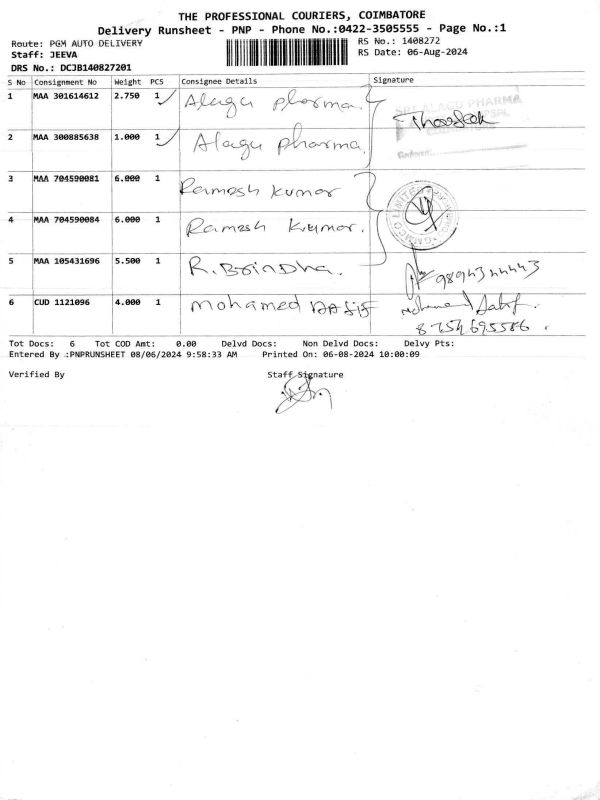 THE PROFESSIONAL COURIERS, COIMBATORE
Delivery Runsheet - PNP - Phone No.:0422-3505555 - Page No.:1
Route: PGM AUTO DELIVERY RS No.: 1408272
Staff: JEEVA RS Date: 06-Aug-2024
DRS No.: DCJB140827201
S No Consignment No Weight PCS Consignee Details Signature
1 MAA 301614612 2.750 1 Alagu pharma.
SRI ALAGU PHARMA
2 MAA 300885638 1.000 1 Alagu pharma.
3 MAA 704590081 6.000 1 Ramesh kumar
4 MAA 704590084 6.000 1 Ramesh Kumar.
5 MAA 105431696 5.500 1 R. Brindha. 9894344443
6 CUD 1121096 4.000 1 mohamed
8754695586.
Tot Docs: 6 Tot COD Amt: 0.00 Delvd Docs: Non Delvd Docs: Delvy Pts:
Entered By :PNPRUNSHEET 08/06/2024 9:58:33 AM Printed On: 06-08-2024 10:00:09
Verified By Staff Signature